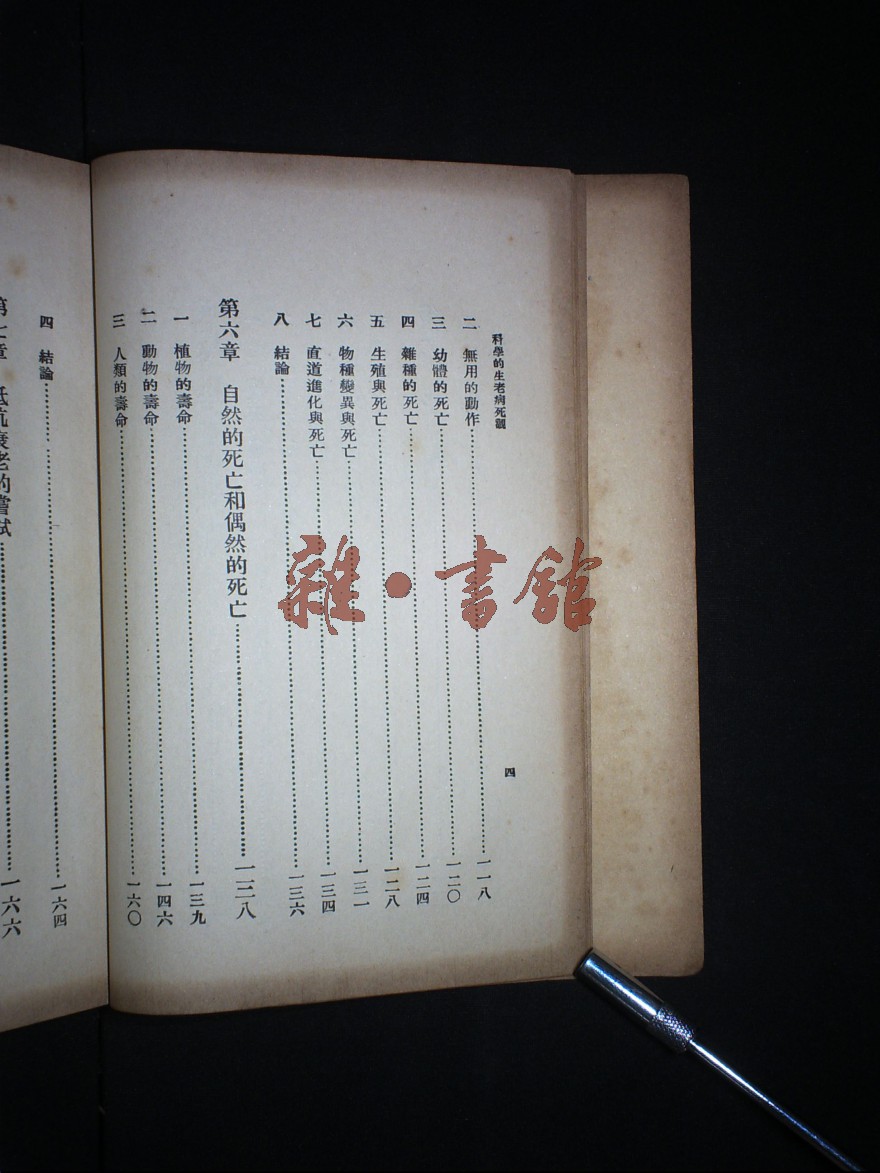 科學的生老病死觀
四
二 無用的動作……一一八
三 幼體的死亡……一二〇
四 雜種的死亡……一二四
五 生殖與死亡……一二八
六 物種變異與死亡……一三一
七 直道進化與死亡……一三四
八 結論……一三六
第六章 自然的死亡和偶然的死亡……一三八
一 植物的壽命……一三九
二 動物的壽命……一四六
三 人類的壽命……一六〇
四 結論……一六四
第七章 抵抗衰老的嘗試……一六六
雜·書館